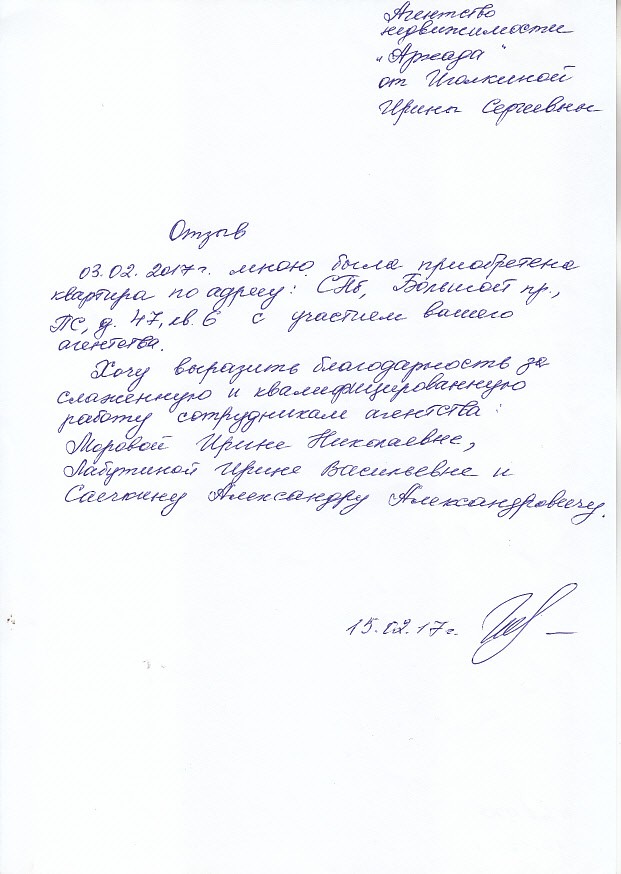 Агентство
недвижимости
"Аркада"
от Иголкиной
Ирины Сергеевны
Отзыв
03.02.2017г. мною была приобретена
квартира по адресу: СПб, Большой пр.,
ПС, д. 47, кв. 6 с участием вашего
агентства.
Хочу выразить благодарность за
слаженную и квалифицированную
работу сотрудникам агентства:
Моровой Ирине Николаевне,
Лабутиной Ирине Васильевне и
Саечкину Александру Александровичу.
15.02.17г.